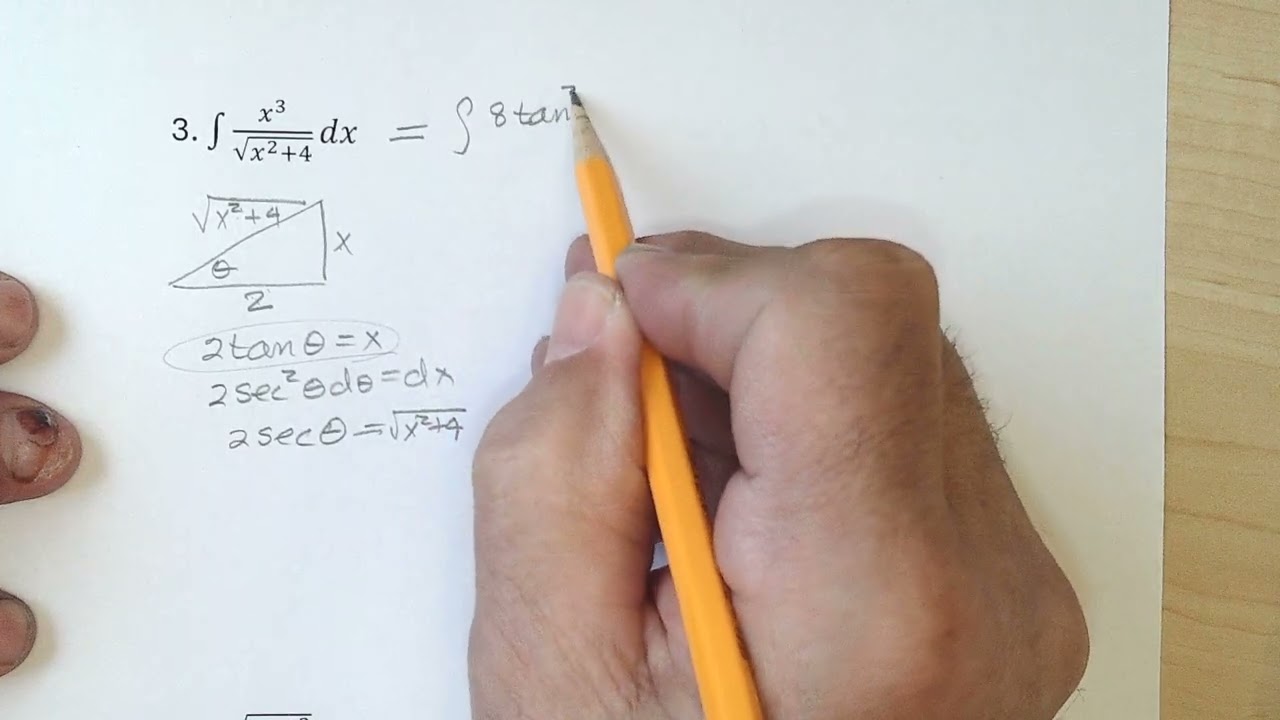 3. ∫ x³/√(x²+4) dx = ∫ 8 tan
√(x²+4)
x
θ
2
2 tan θ = x
2 sec² θ dθ = dx
2 sec θ = √(x²+4)